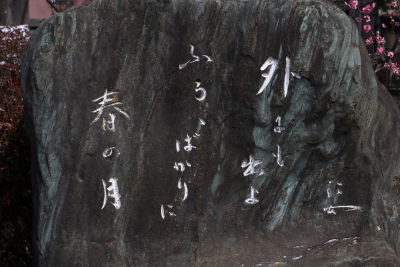 汀女
外にも出よ
ふるゝばかりに
春の月